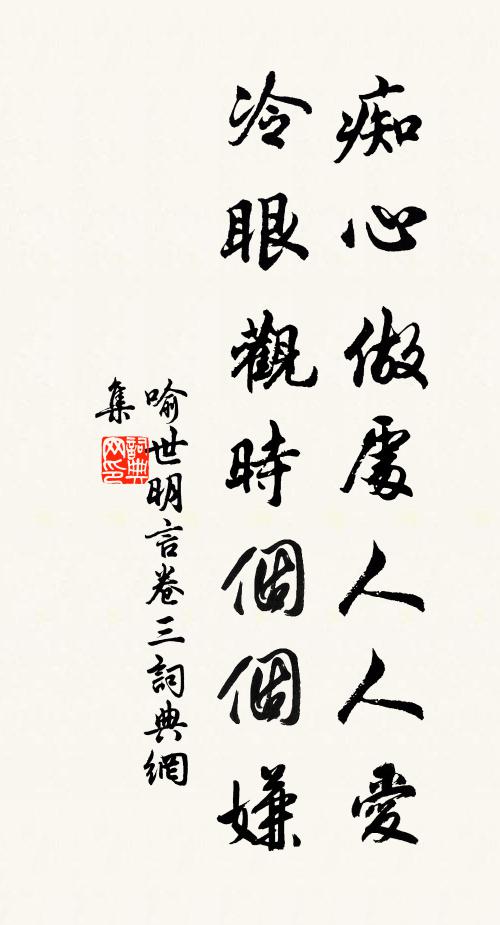 痴心做處人人愛
冷眼觀時個個嫌
喻世明言卷三詞典網
集
詞典
网印